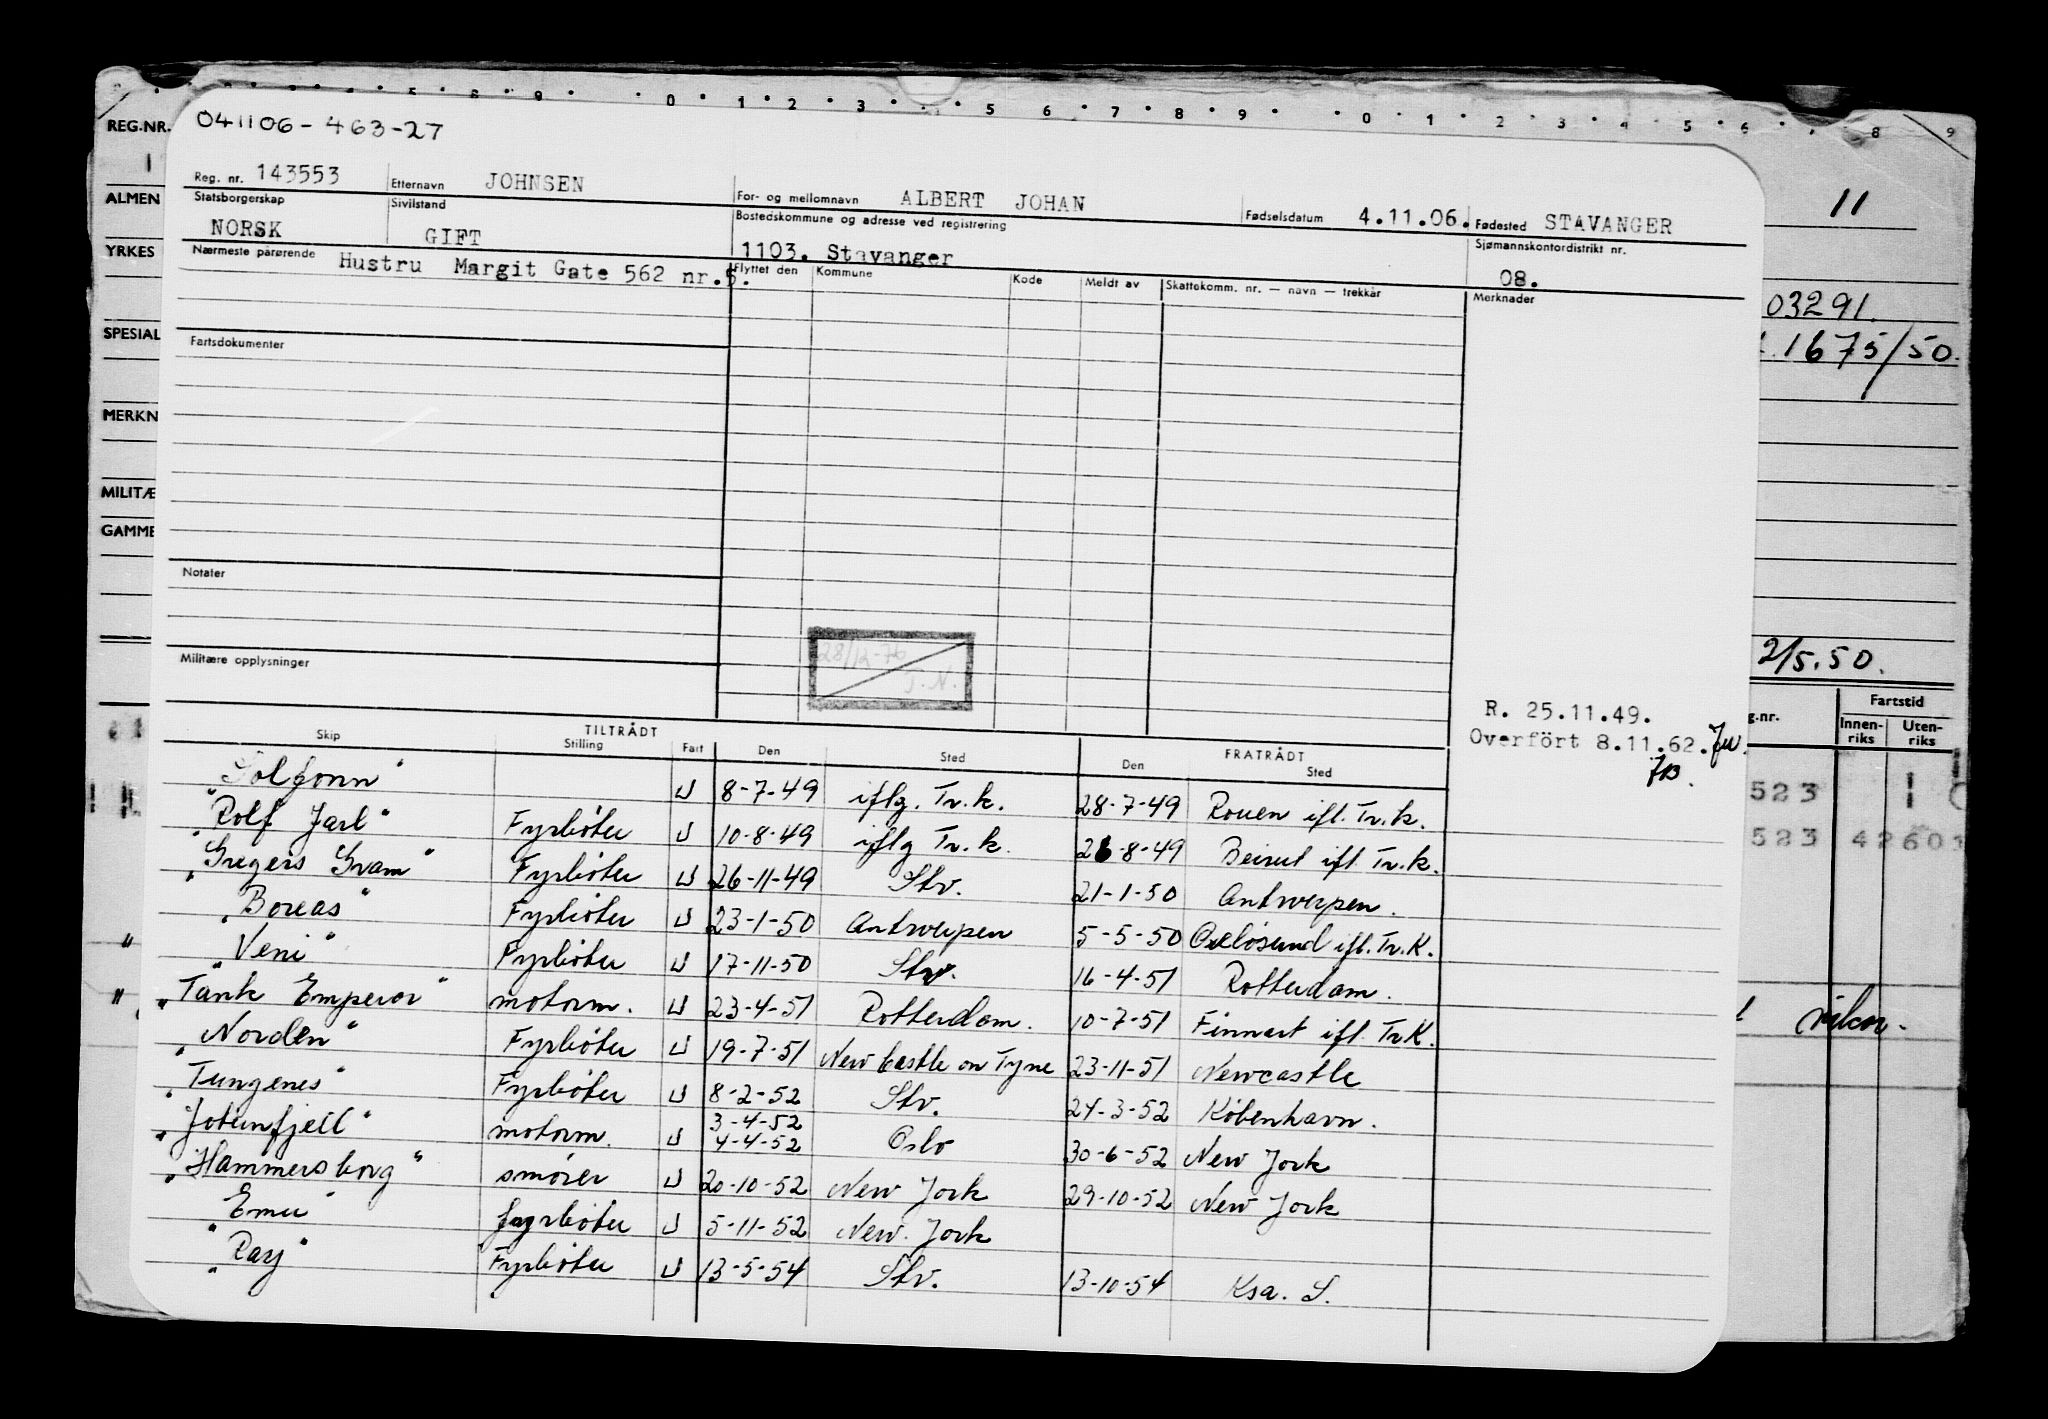 REG.NR.
ALMEN
YRKES
SPESIAL
MERKN
MILITÆ
GAMME
041106-463-27
Reg. nr. 143553 Etternavn JOHNSEN For- og mellomnavn ALBERT JOHAN Fødselsdatum 4.11.06. Fødested STAVANGER
Statsborgerskap NORSK Sivilstand GIFT Bostedskommune og adresse ved registrering 1103. Stavanger Sjømannskontordistrikt nr. 08.
Nærmeste pårørende Hustru Margit Gate 562 nr.5. Flyttet den Kommune Kode Meldt av Skattekomm. nr. — navn — trekkår Merknader
Fartsdokumenter
Notater
Militære opplysninger
28/12-76
J.N.
R. 25.11.49.
Overfört 8.11.62.
TILTRÅDT FRATRÅDT
Skip Stilling Fart Den Sted Den Sted
"Solfonn" U 8-7-49 iflg. Tr.k. 28-7-49 Rouen ifl. Tr.k.
"Rolf Jarl" Fyrbøter U 10-8-49 iflg Tr.k. 26-8-49 Beirut ifl Tr.k.
"Gregers Gram" Fyrbøter U 26-11-49 Stv. 21-1-50 Antwerpen.
"Boreas" Fyrbøter U 23-1-50 Antwerpen 5-5-50 Oxeløsund ifl. Tr.K.
"Veni" Fyrbøter U 17-11-50 Stv. 16-4-51 Rotterdam.
"Tank Emperor" motorm. U 23-4-51 Rotterdam. 10-7-51 Finnart ifl. Tr.K.
"Norden" Fyrbøter U 19-7-51 New Castle on Tyne 23-11-51 Newcastle
"Tungenes" Fyrbøter U 8-2-52 Stv. 24-3-52 København.
"Jotunfjell" motorm. U 3-4-52 4-4-52 Oslo 30-6-52 New York
"Hammersborg" smører U 20-10-52 New York 29-10-52 New York
"Emu" fyrbøter U 5-11-52 New York
"Ray" Fyrbøter U 13-5-54 Stv. 13-10-54 Ksa. S.
11
03291.
1675/50.
2/5.50.
g.nr. Fartstid
Innen-riks Uten-riks
523
523 42603